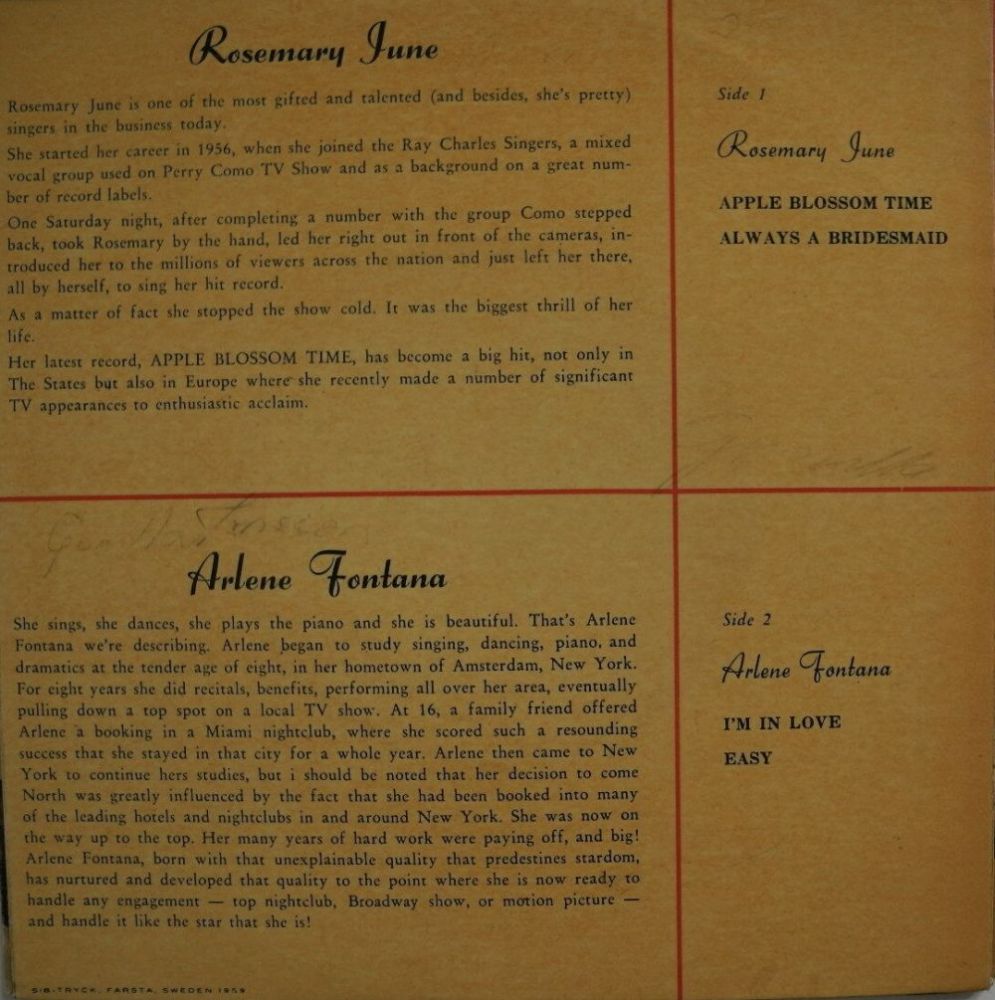 Rosemary June
Rosemary June is one of the most gifted and talented (and besides, she's pretty)
singers in the business today.
She started her career in 1956, when she joined the Ray Charles Singers, a mixed
vocal group used on Perry Como TV Show and as a background on a great num-
ber of record labels.
One Saturday night, after completing a number with the group Como stepped
back, took Rosemary by the hand, led her right out in front of the cameras, in-
troduced her to the millions of viewers across the nation and just left her there,
all by herself, to sing her hit record.
As a matter of fact she stopped the show cold. It was the biggest thrill of her
life.
Her latest record, APPLE BLOSSOM TIME, has become a big hit, not only in
The States but also in Europe where she recently made a number of significant
TV appearances to enthusiastic acclaim.
Side 1
Rosemary June
APPLE BLOSSOM TIME
ALWAYS A BRIDESMAID
Arlene Fontana
She sings, she dances, she plays the piano and she is beautiful. That's Arlene
Fontana we're describing. Arlene began to study singing, dancing, piano, and
dramatics at the tender age of eight, in her hometown of Amsterdam, New York.
For eight years she did recitals, benefits, performing all over her area, eventually
pulling down a top spot on a local TV show. At 16, a family friend offered
Arlene a booking in a Miami nightclub, where she scored such a resounding
success that she stayed in that city for a whole year. Arlene then came to New
York to continue hers studies, but i should be noted that her decision to come
North was greatly influenced by the fact that she had been booked into many
of the leading hotels and nightclubs in and around New York. She was now on
the way up to the top. Her many years of hard work were paying off, and big!
Arlene Fontana, born with that unexplainable quality that predestines stardom,
has nurtured and developed that quality to the point where she is now ready to
handle any engagement — top nightclub, Broadway show, or motion picture —
and handle it like the star that she is!
Side 2
Arlene Fontana
I'M IN LOVE
EASY
SIB-TRYCK, FARSTA, SWEDEN 1959